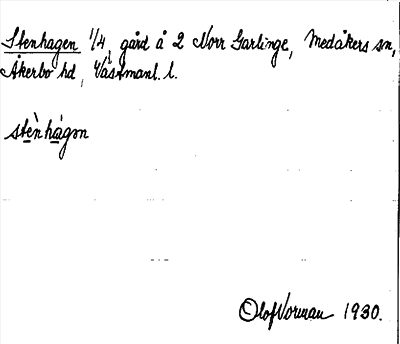 Stenhagen 1/4, gård å 2 Norr Garlinge, Medåkers sn,
Åkerbo hd, Västmanl. l.
stè̱nhà̱gən
Olof Norman 1930.